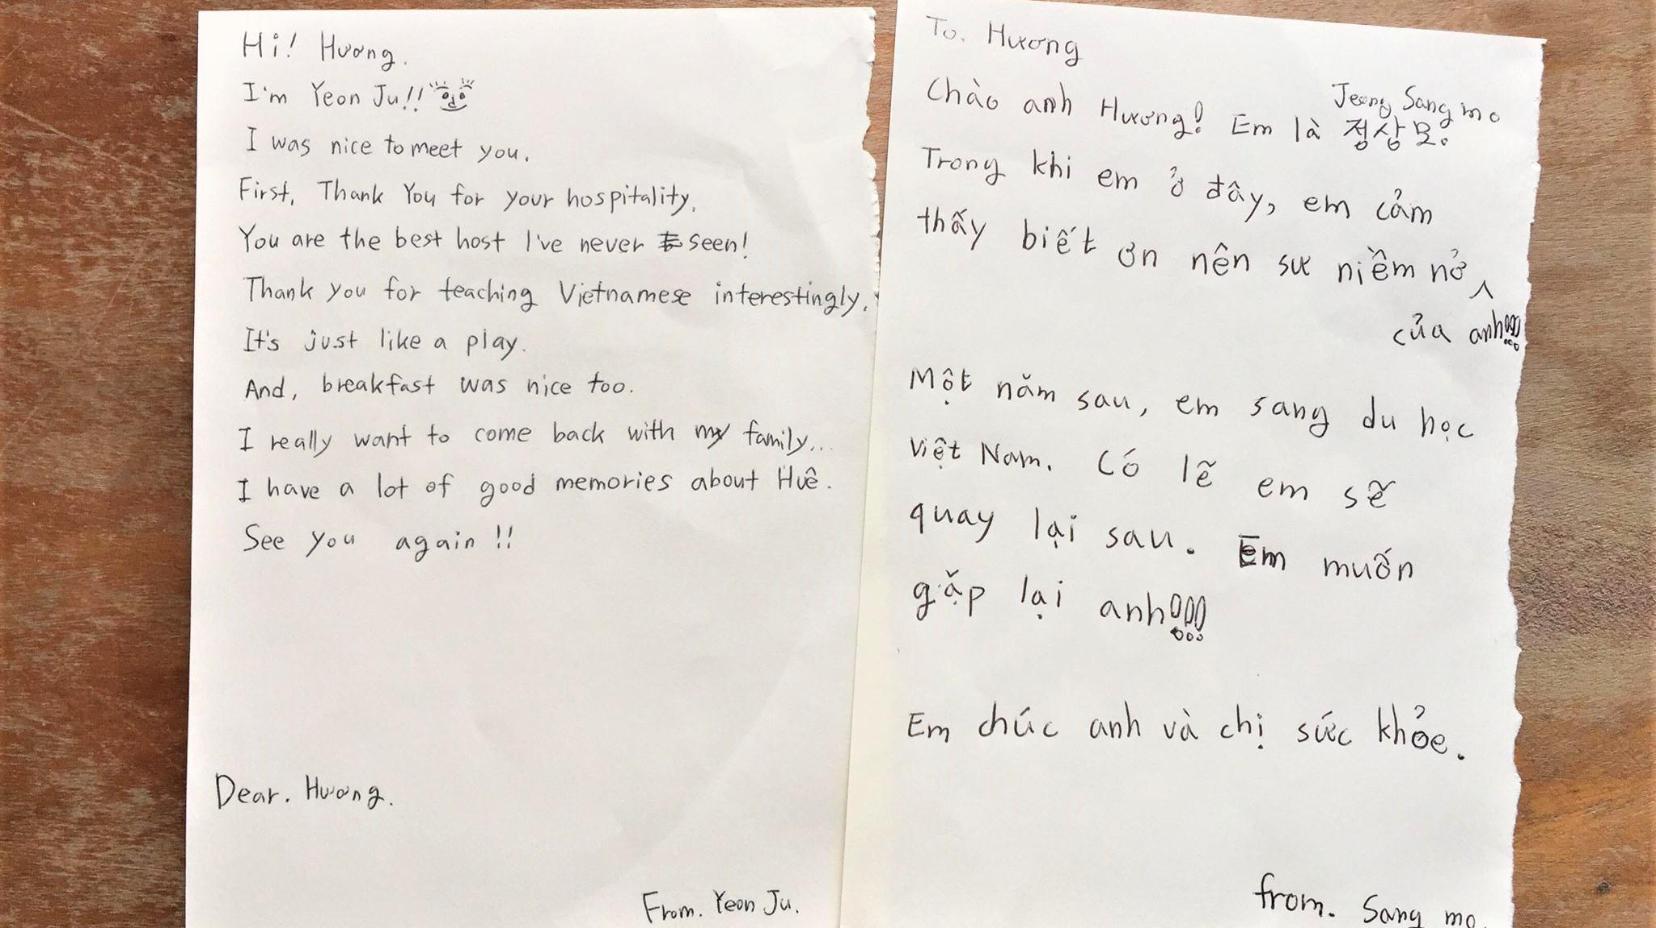 Hi! Hương.
I'm Yeon Ju!!
I was nice to meet you.
First, Thank You for your hospitality.
You are the best host I've never seen!
Thank you for teaching Vietnamese interestingly.
It's just like a play.
And, breakfast was nice too.
I really want to come back with my family...
I have a lot of good memories about Huê.
See you again!!
Dear. Hương.
From. Yeon Ju.
To. Hương
Jeong Sang mo
Chào anh Hương! Em là 정상모.
Trong khi em ở đây, em cảm
thấy biết ơn nên sư niềm nở
của anh!!!
Một năm sau, em sang du học
Việt Nam. Có lẽ em sẽ
quay lại sau. Em muốn
gặp lại anh!!!
Em chúc anh và chị sức khỏe.
from. Sang mo.